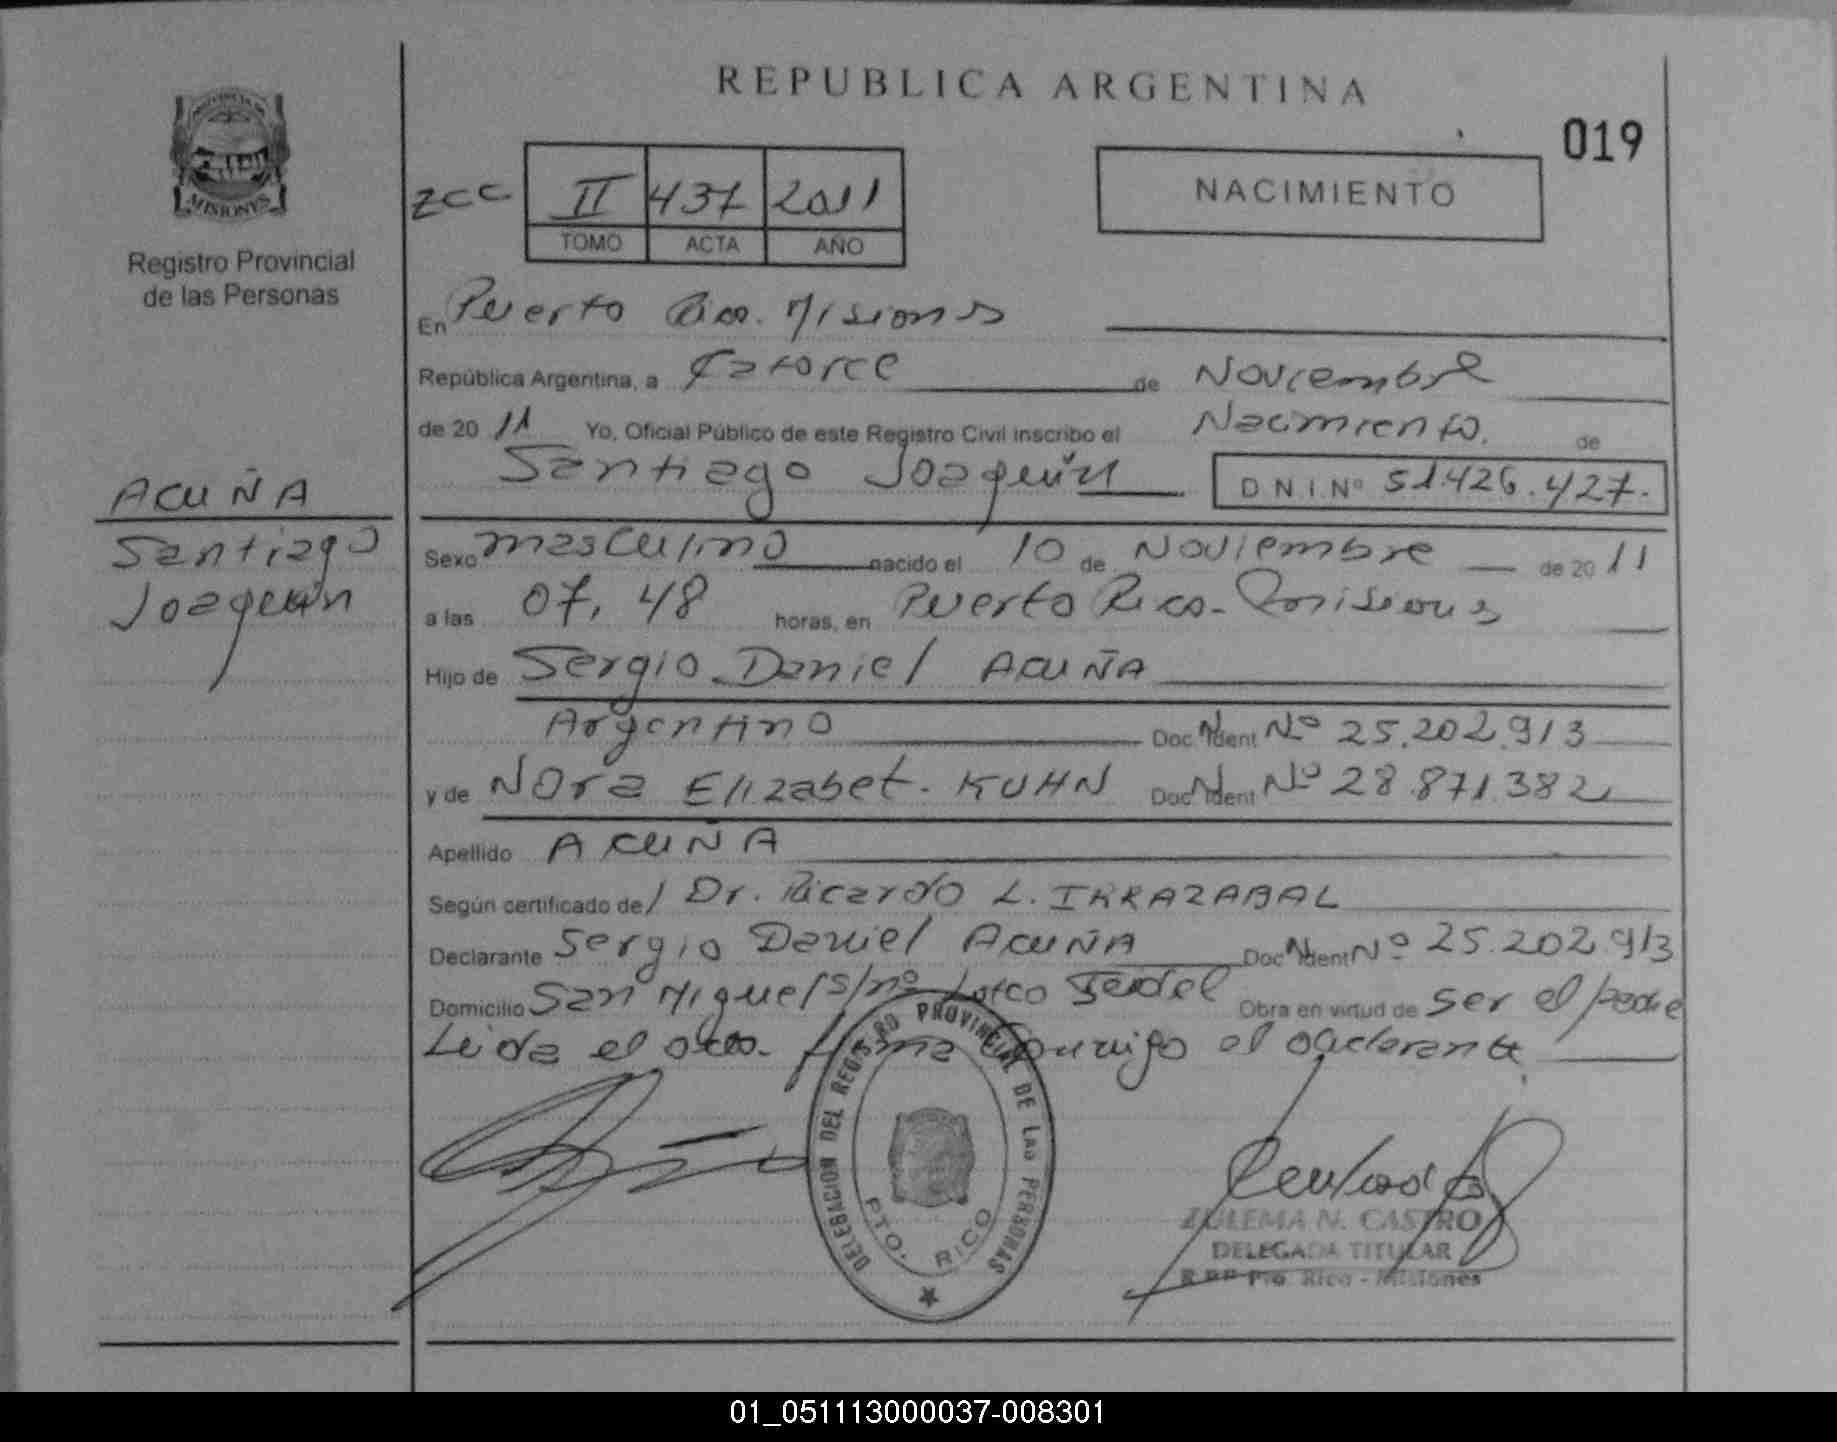 REPUBLICA ARGENTINA
019
PROVINCIA DE
MISIONES
Registro Provincial
de las Personas
ZCC II 437 2011
TOMO ACTA AÑO
NACIMIENTO
En Puerto Rico. Misiones
República Argentina, a Catorce de Noviembre
de 20 11 Yo, Oficial Público de este Registro Civil inscribo el Nacimiento. de
Santiago Joaquín D N I Nº 51.426.427.
ACUÑA
Santiago
Joaquín
Sexo masculino nacido el 10 de Noviembre de 20 11
a las 07, 48 horas, en Puerto Rico - Misiones
Hijo de Sergio Daniel ACUÑA
Argentino Doc. Ident Nº 25.202.913
y de Nora Elizabet. KUHN Doc. Ident Nº 28.871.382
Apellido ACUÑA
Según certificado de/ Dr. Ricardo L. IRRAZABAL
Declarante Sergio Daniel ACUÑA Doc. Ident Nº 25.202.913
Domicilio San Miguel s/nº Loteo Seidel Obra en virtud de ser el padre
Leida el acta. firma conmigo el declarante
DELEGACION DEL REGISTRO PROVINCIAL DE LAS PERSONAS
PTO. RICO
ZULEMA N. CASTRO
DELEGADA TITULAR
R.P.P. Pto. Rico - Misiones
01_051113000037-008301